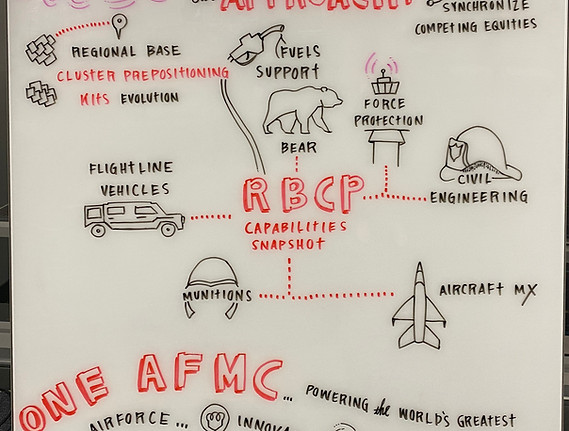 APPROACH
SYNCHRONIZE
COMPETING EQUITIES
REGIONAL BASE
CLUSTER PREPOSITIONING
KITS EVOLUTION
FUELS
SUPPORT
BEAR
FORCE
PROTECTION
CIVIL
ENGINEERING
FLIGHTLINE
VEHICLES
RBCP
CAPABILITIES
SNAPSHOT
MUNITIONS
AIRCRAFT MX
ONE AFMC...
POWERING the WORLD'S GREATEST
AIRFORCE...